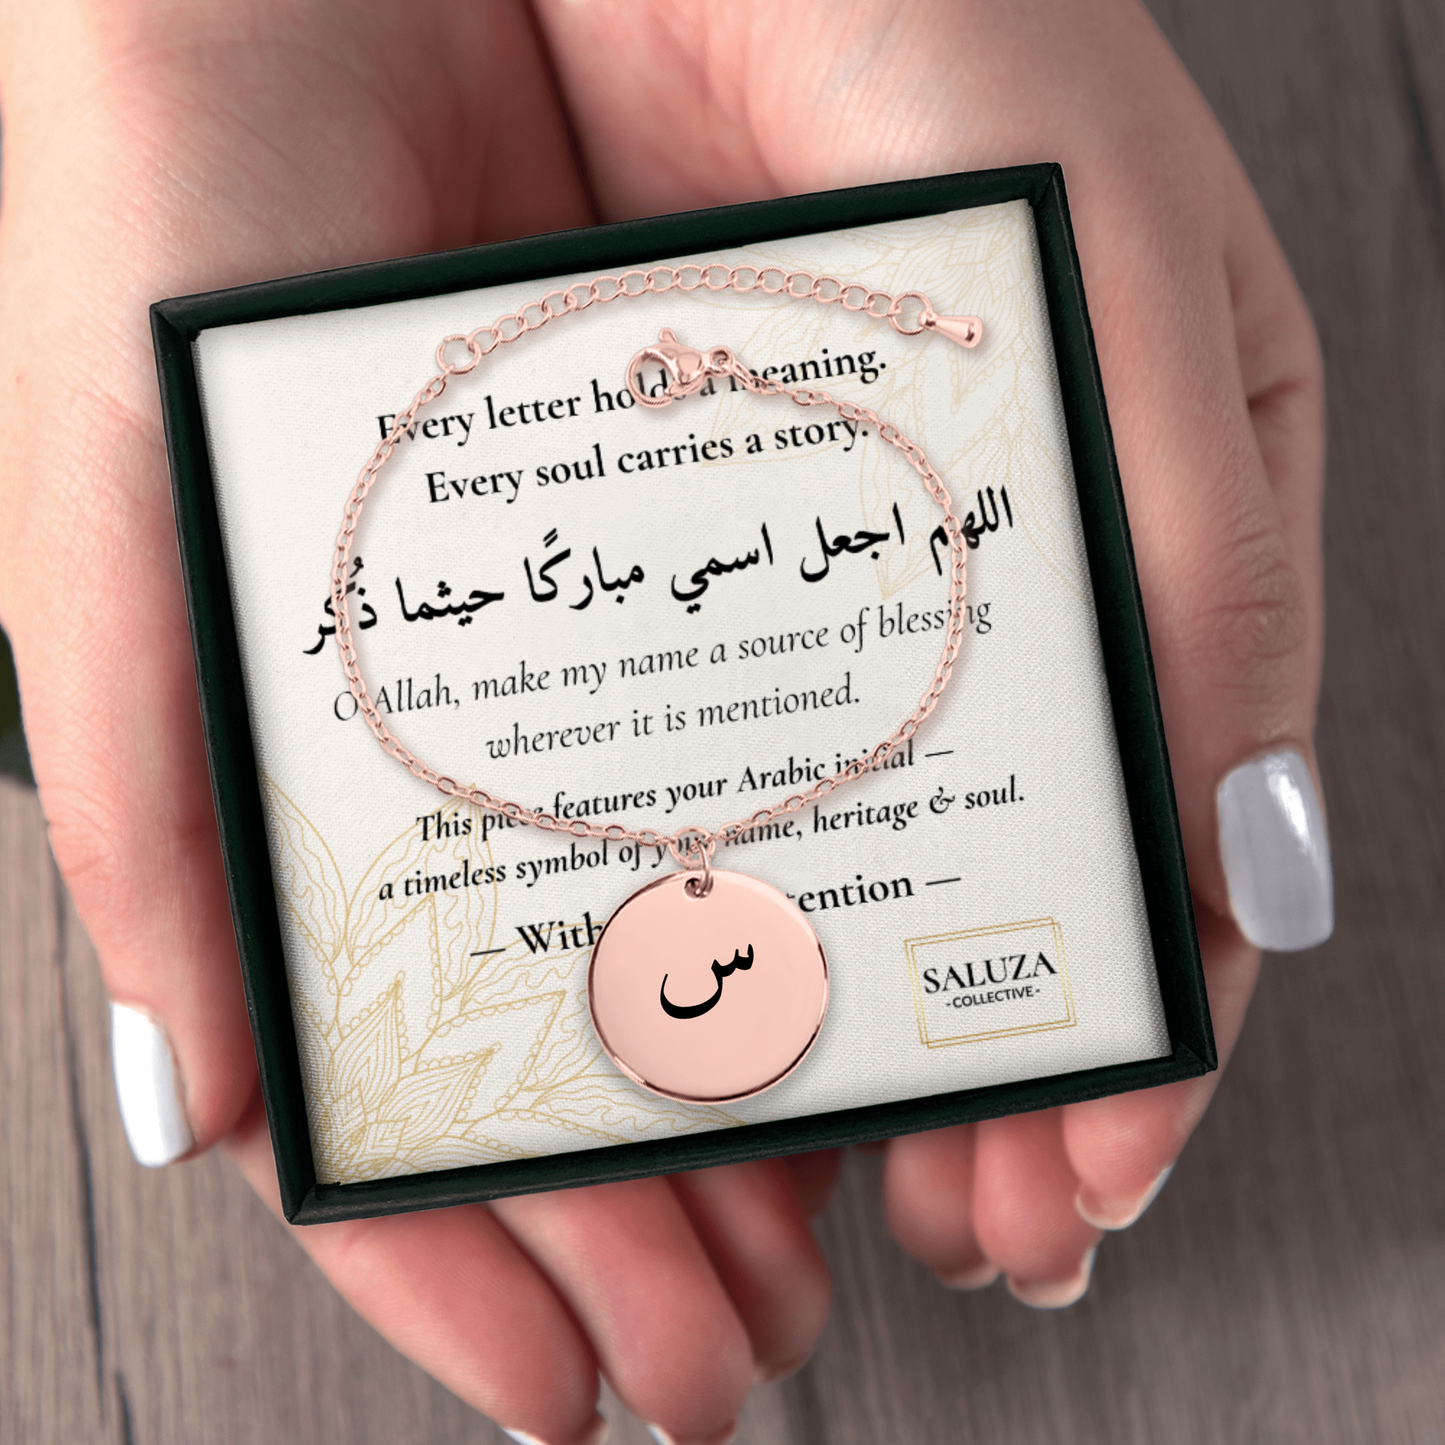 Every letter holds a meaning.
Every soul carries a story.
اللهم اجعل اسمي مباركًا حيثما ذُكر
O Allah, make my name a source of blessing
wherever it is mentioned.
This piece features your Arabic initial —
a timeless symbol of your name, heritage & soul.
— With
tention —
س
SALUZA
-COLLECTIVE-